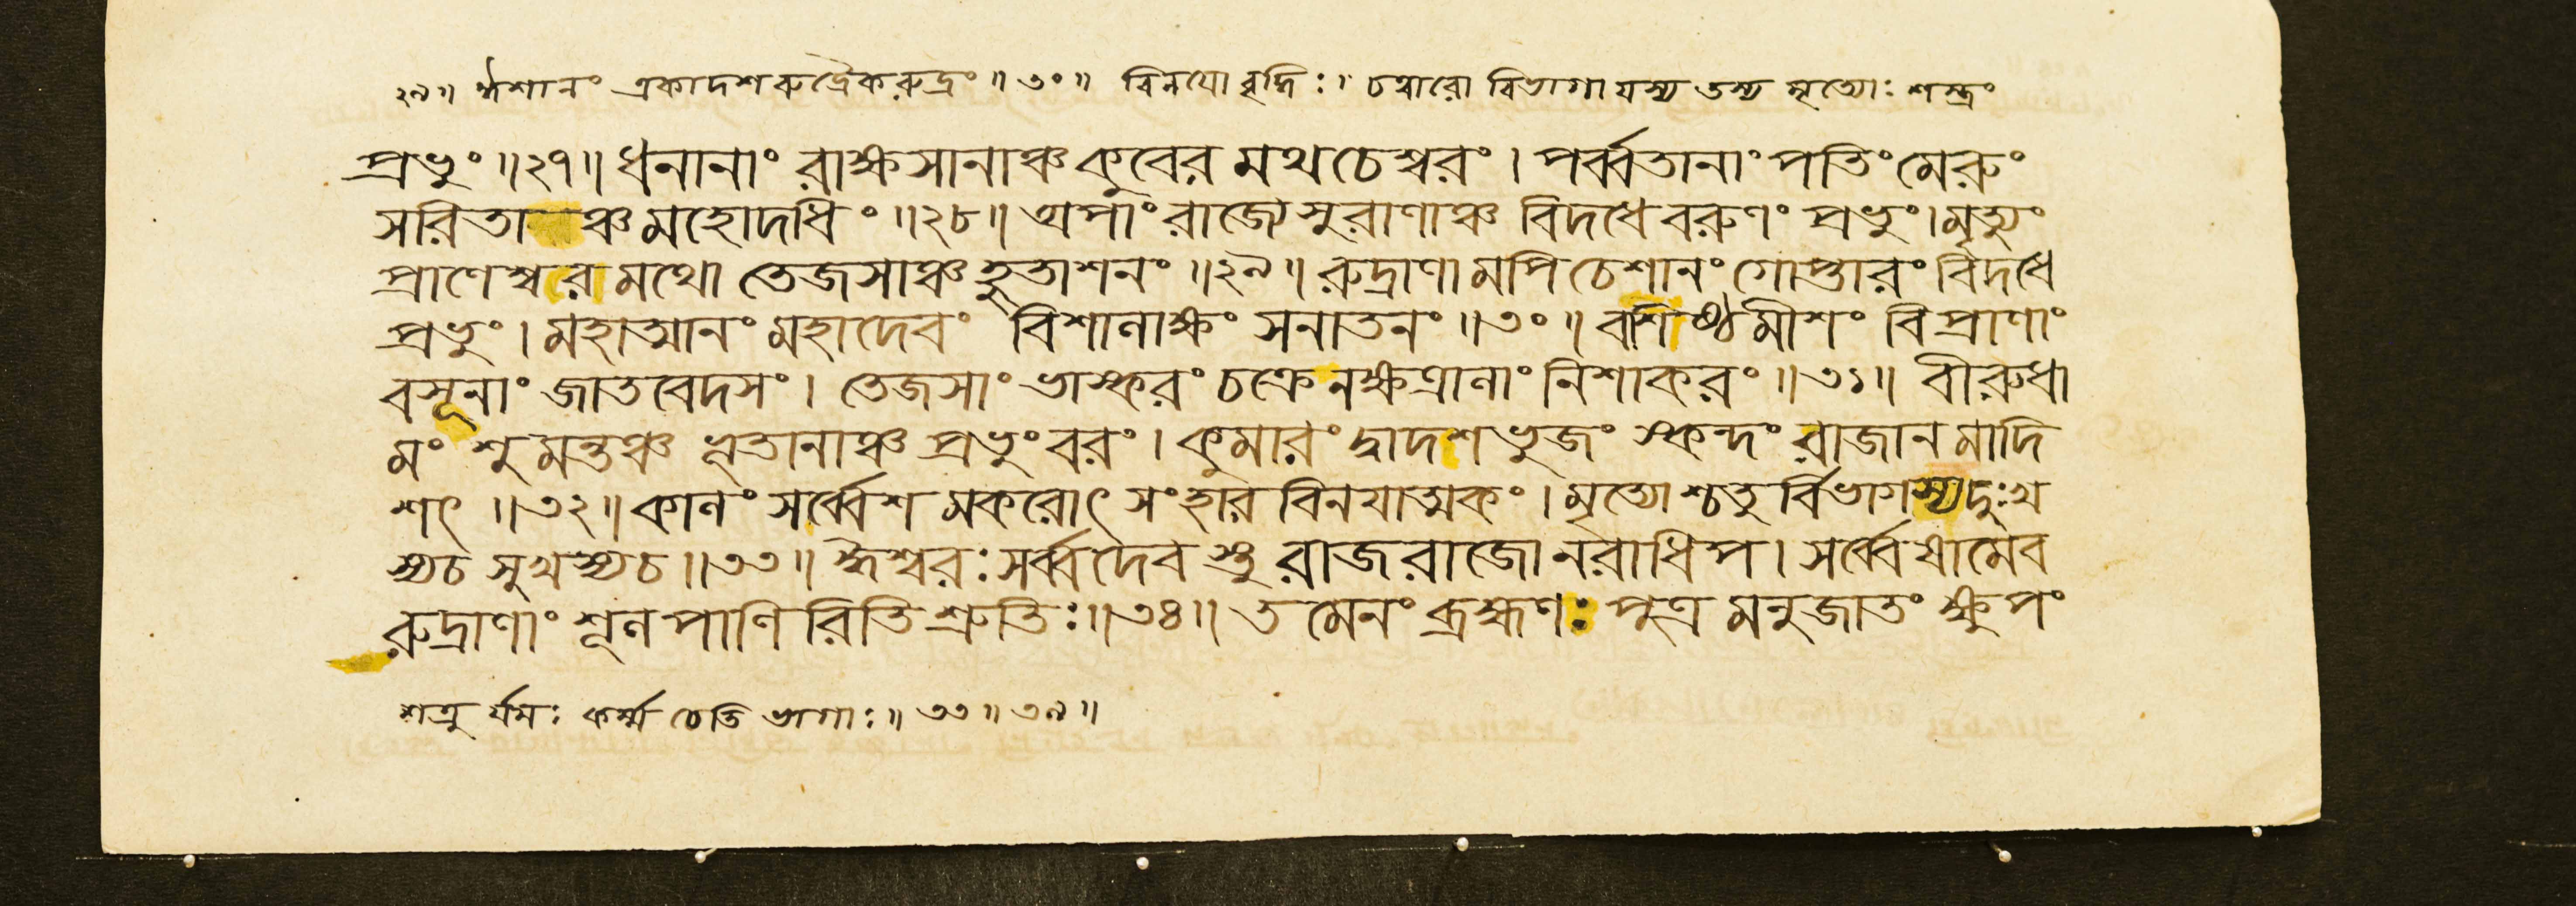 ২৯॥ ঈশানং একাদশরুদ্রৈকরুদ্রং॥৩০॥ বিনযো বৃদ্ধিঃ। চত্বারো বিভাগা যস্য তস্য মৃত্যোঃ শস্ত্রং
প্রভুং॥২৭॥ ধনানাং রাক্ষসানাঞ্চ কুবের মথ চেশ্বরং। পর্ব্বতানাং পতিং মেরুং
সরিতাঞ্চ মহোদধিং॥২৮॥ অপাং রাজ্যে সুরাণাঞ্চ বিদধে বরুণং প্রভুং। মৃত্যুং
প্রাণেশ্বর মথো তেজসাঞ্চ হুতাশনং॥২৯॥ রুদ্রাণামপি চেশানং গোপ্তারং বিদধে
প্রভুং। মহাত্মানং মহাদেবং বিশালাক্ষং সনাতনং॥৩০॥ বশিষ্ঠমীশং বিপ্রাণাং
বসূনাং জাতবেদসং। তেজসাং ভাস্করং চক্রে নক্ষত্রানাং নিশাকরং॥৩১॥ বীরুধা
মংশুমন্তঞ্চ ভূতানাঞ্চ প্রভুং বরং। কুমারং দ্বাদশভুজং স্কন্দং রাজানমাদি
শৎ॥৩২॥ কালং সর্ব্বেশ মকরোৎ সংহার বিনযাত্মকং। মৃত্যোশ্চতুর্বিভাগস্য দুঃখ
স্য চ সুখস্য চ॥৩৩॥ ঈশ্বরঃ সর্ব্বদেবস্তু রাজরাজো নরাধিপ। সর্ব্বেষামেব
রুদ্রাণাং শূলপাণিরিতি শ্রুতিঃ॥৩৪॥ তমেনং ব্রহ্মণঃ পুত্র মনুজাতং ক্ষুপং
শত্রুর্যমঃ কর্ম্ম চেতি ভাগাঃ॥৩৩॥৩৪॥